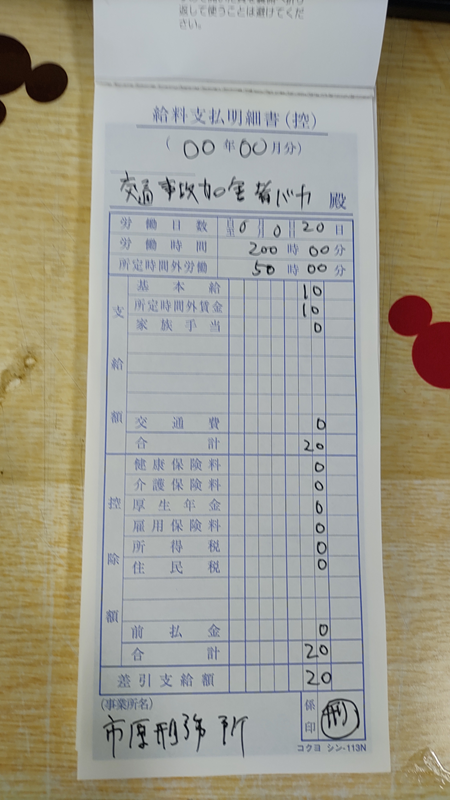 返して使うことは避けてくだ
さい。
給料支払明細書(控)
(00年00月分)
交通事故加害者バカ 殿
労働日数 自 至 0 月 月 0 日 日 20日
労働時間 200時00分
所定時間外労働 50時00分
支給額
基本給 10
所定時間外賃金 10
家族手当 0
交通費 0
合計 20
控除額
健康保険料 0
介護保険料 0
厚生年金 0
雇用保険料 0
所得税 0
住民税 0
前払金 0
合計 20
差引支給額 20
(事業所名)
市原刑務所
係印 刑
コクヨ シン-113N